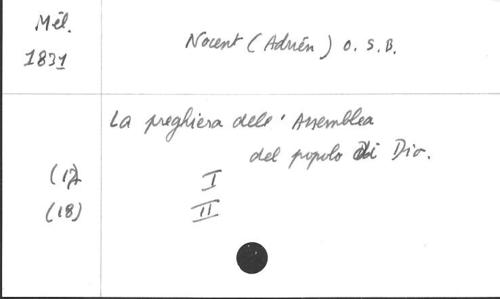 Mél.
1831
Nocent (Adrién) O. S. B.
La preghiera dell' Assemblea
del popolo di Dio.
(17) I
(18) II